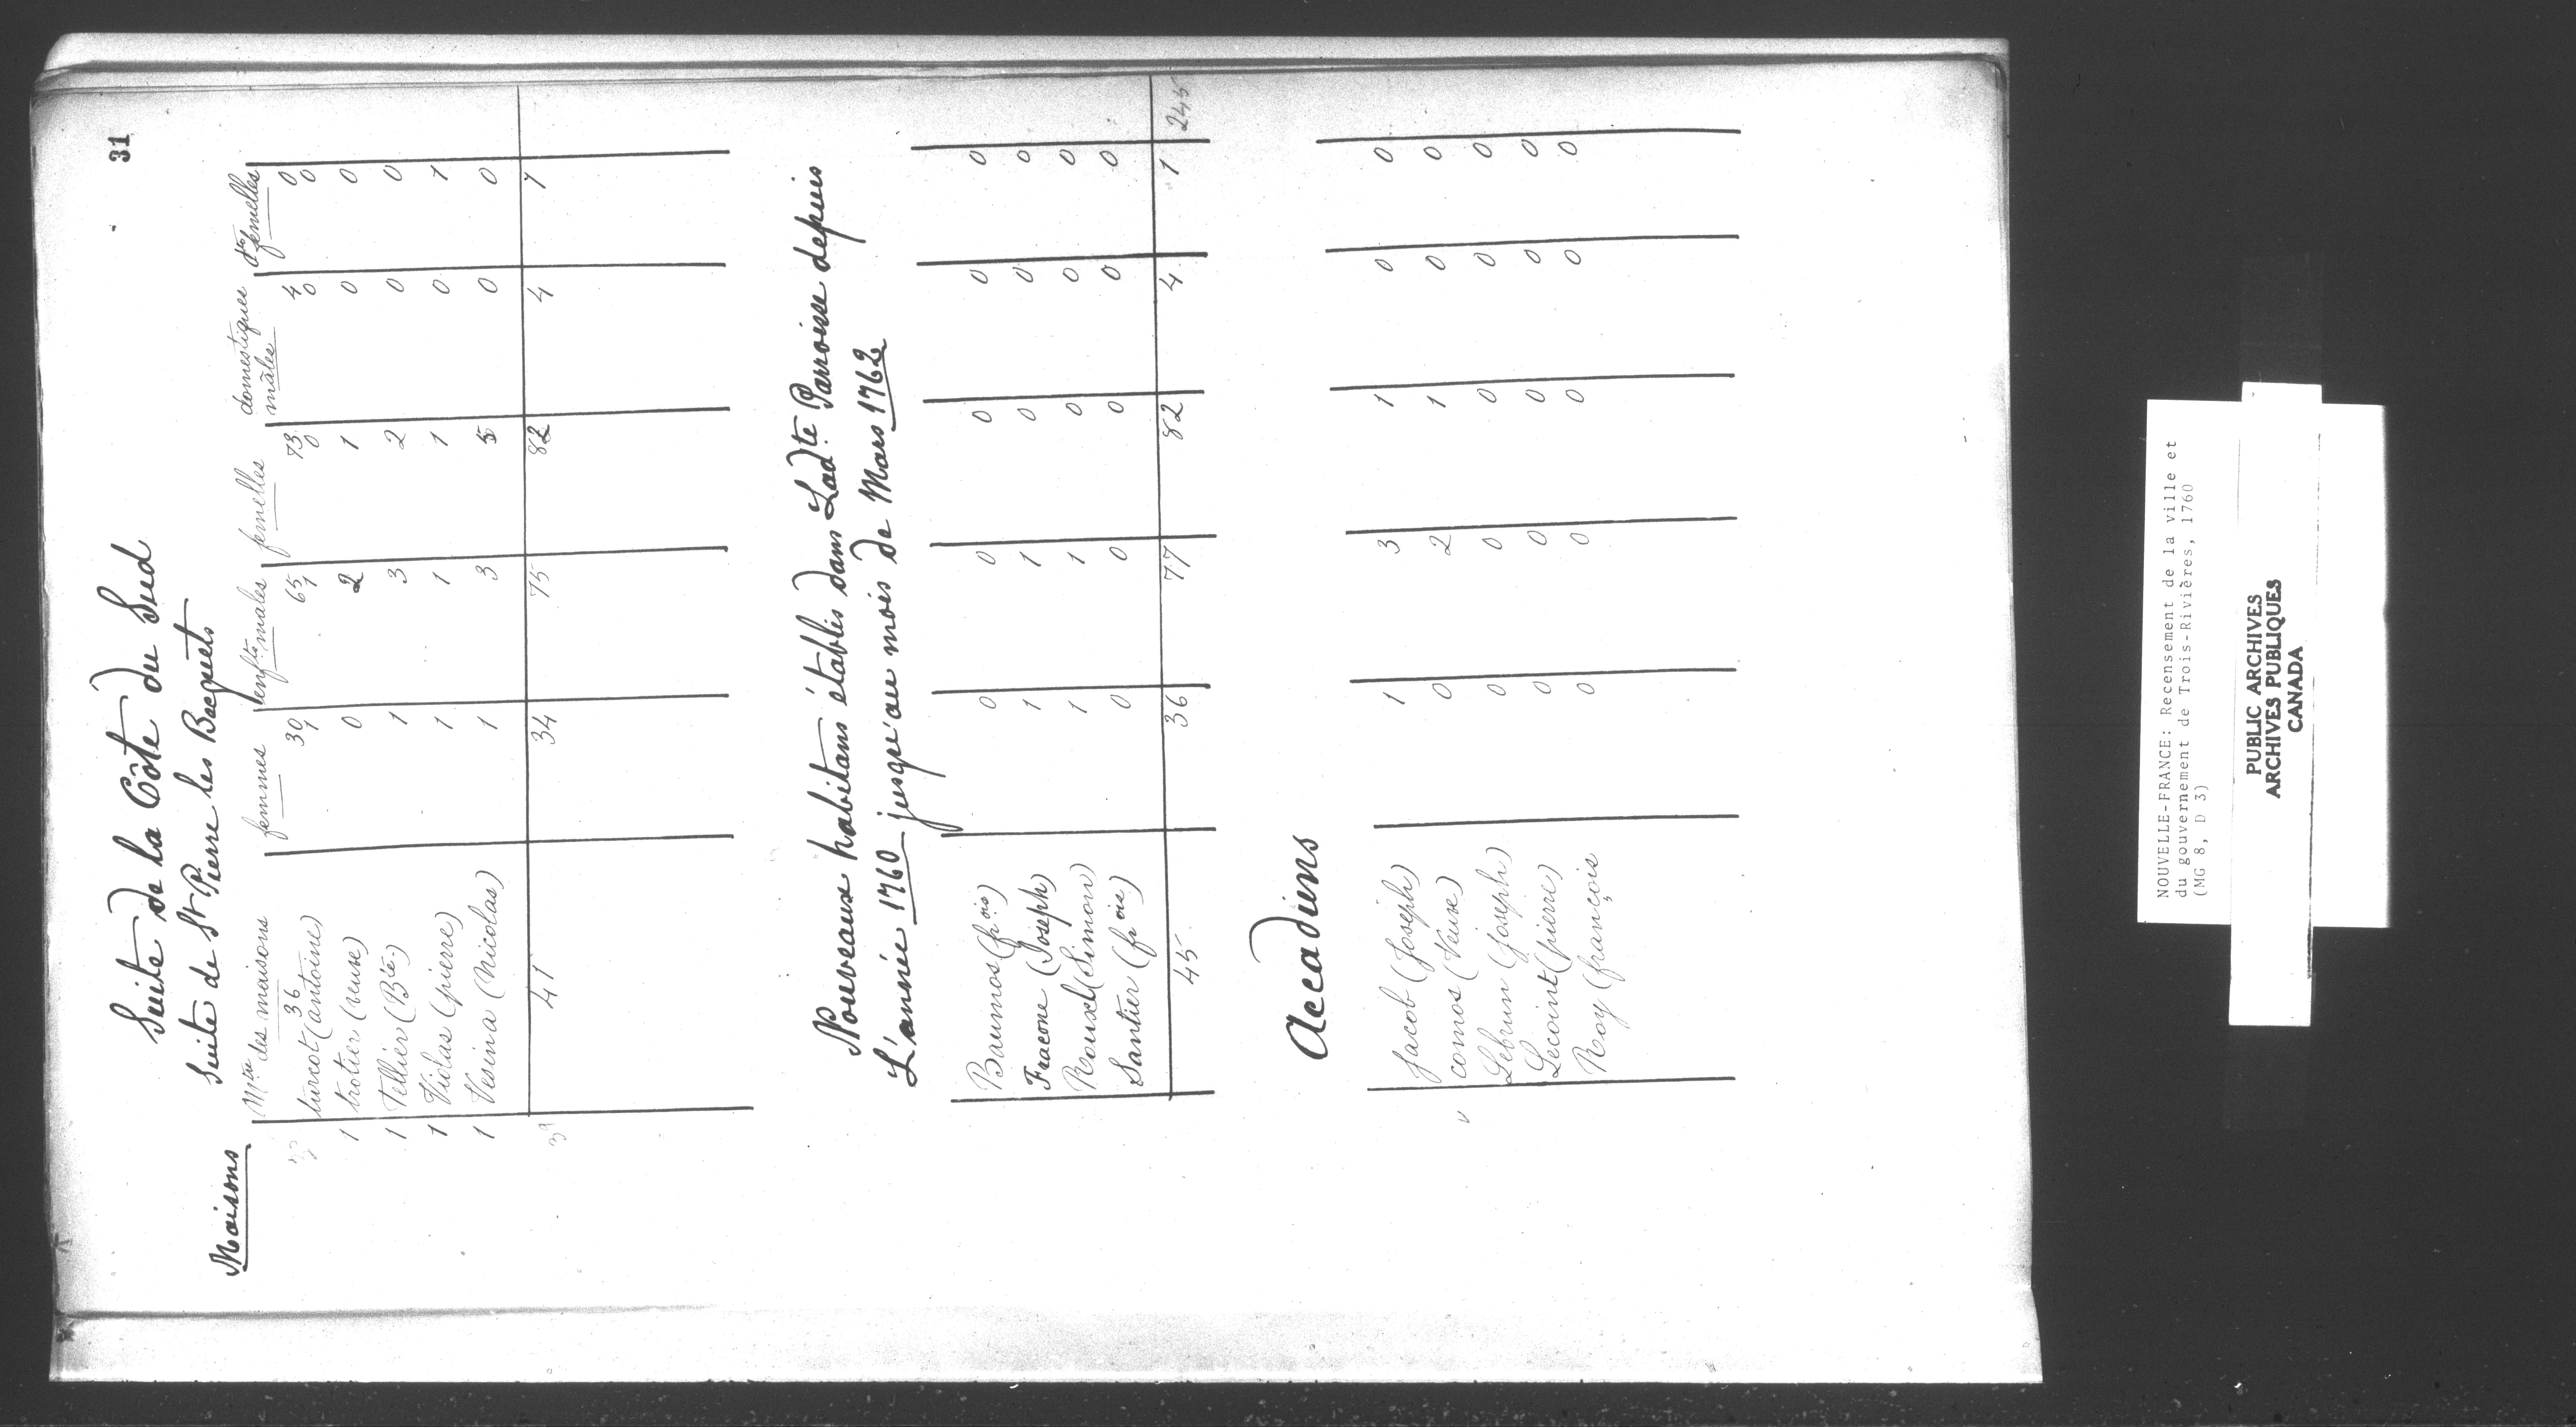 31
Suite de la Côte du Sud
Suite de St Pierre les Becquets
Maisons Mtre des maisons femmes enfts mâles femelles domestiques mâles dtes femelles
36 30 65 73 4 0
turcot (antoine) 1 1 0 0 0
1 trotier (veuve) 0 2 1 0 0
1 Tellier (Bte.) 1 3 2 0 0
1 Violas (pierre) 1 1 1 0 1
1 Vesina (Nicolas) 1 3 5 0 0
39 41 34 75 82 4 1
Nouveaux habitans établis dans Ladte Parroisse depuis
L'année 1760 jusqu'au mois de Mars 1762
Baumos (frois) 0 0 0 0 0
Fracone (Joseph) 1 1 0 0 0
Rouxel (Simon) 1 1 0 0 0
Santier (frois) 0 0 0 0 0
45 36 77 82 4 1 245
Accadiens
Jacob (Joseph) 1 3 1 0 0
comos (Veuve) 0 2 1 0 0
Lebrun (joseph) 0 0 0 0 0
Lecoint (pierre) 0 0 0 0 0
Roy (françois 0 0 0 0 0
NOUVELLE-FRANCE: Recensement de la ville et
du gouvernement de Trois-Rivières, 1760
(MG 8, D 3)
PUBLIC ARCHIVES
ARCHIVES PUBLIQUES
CANADA